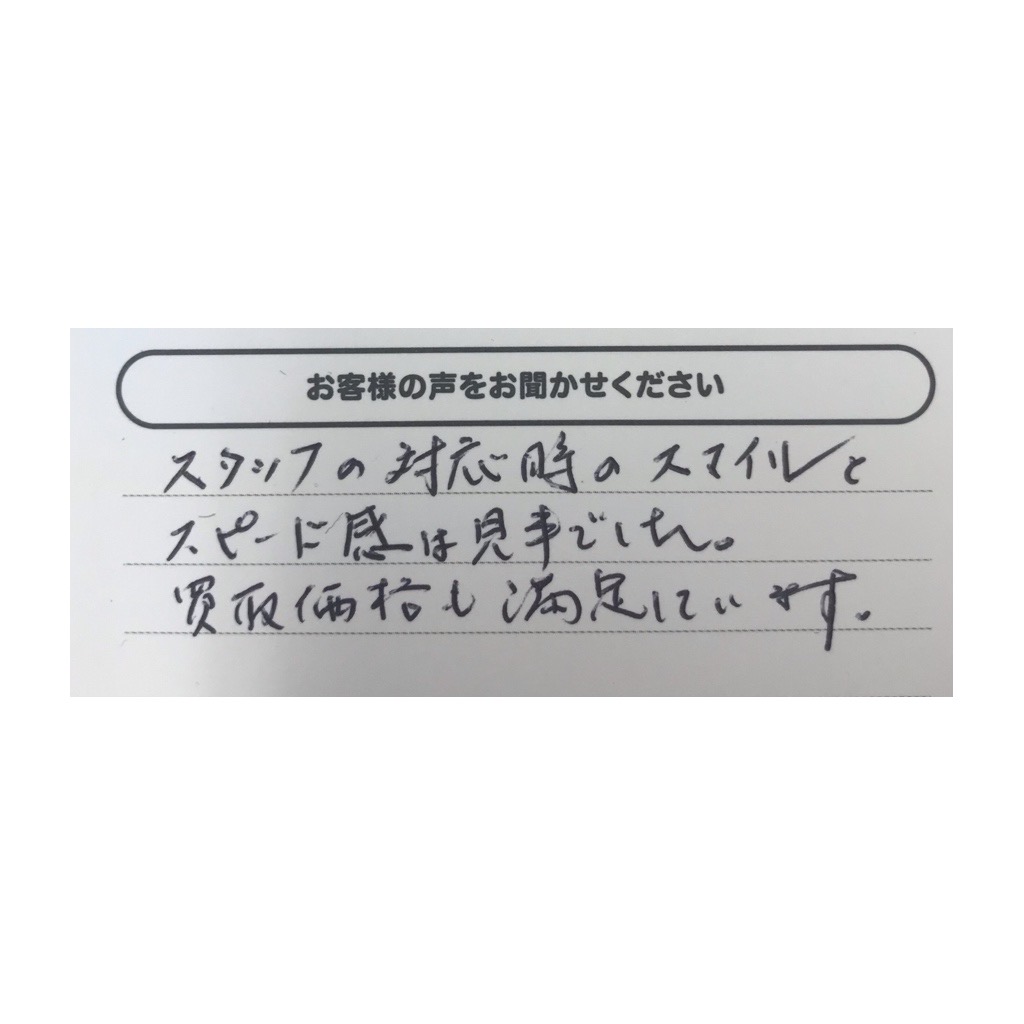 お客様の声をお聞かせください
スタッフの対応時のスマイルと
スピード感は見事でした。
買取価格も満足しています。